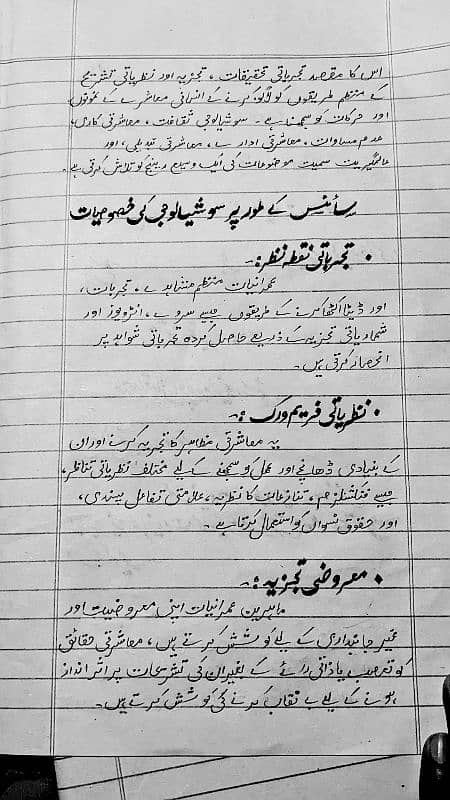 اس کا مقصد تجرباتی تحقیقات، تجزیہ اور نظریاتی تشریح
کے منظم طریقوں کو لاگو کرنے کے انسانی معاشرے کے نمونوں
اور محرکات کو سمجھنا ہے۔ سوشیالوجی ثقافت، معاشرتی کاری،
عدم مساوات، معاشرتی ادارے، معاشرتی تبدیلی، اور
عالمگیریت سمیت موضوعات کی ایک وسیع رینج کو تلاش کرتی ہے۔
سائنس کے طور پر سوشیالوجی کی خصوصیات
• تجرباتی نقطہ نظر:۔
عمرانیات منظم مشاہدے، تجربات،
اور ڈیٹا اکٹھا کرنے کے طریقوں جیسے سروے، انٹرویوز اور
شماریاتی تجزیہ کے ذریعے حاصل کردہ تجرباتی شواہد پر
انحصار کرتی ہیں۔
• نظریاتی فریم ورک:۔
یہ معاشرتی مظاہر کا تجزیہ کرنے اور ان
کے بنیادی ڈھانچے اور عمل کو سمجھنے کے لیے مختلف نظریاتی تناظر،
جیسے فنکشنلزم، تنازعات کا نظریہ، علامتی تفاعل پسندی،
اور حقوق نسواں کو استعمال کرتا ہے۔
• معروضی تجزیہ:۔
ماہرین عمرانیات اپنی معروضیت اور
غیر جانبداری کے لیے کوشش کرتے ہیں، معاشرتی حقائق
کو تعصب یا ذاتی رائے کے بغیر ان کی تشریحات پر اثر انداز
ہونے کے لیے بے نقاب کرنے کی کوشش کرتے ہیں۔